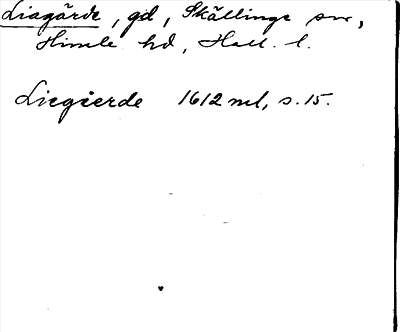 Liagärde, gd, Skällinge sn,
Himle hd, Hall. l.
Liegierde 1612 ml, s. 15.